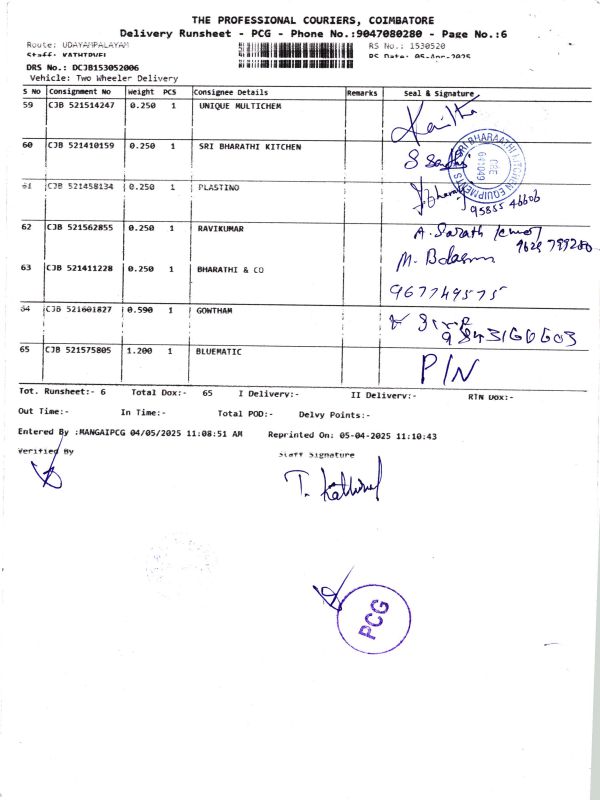 THE PROFESSIONAL COURIERS, COIMBATORE
Delivery Runsheet - PCG - Phone No.:9047080280 - Page No.:6
Route: UDAYAMPALAYAM RS No.: 1530520
Staff: KATHIRVEL RS Date: 05-Apr-2025
DRS No.: DCJB153052006
Vehicle: Two Wheeler Delivery
S No Consignment No Weight PCS Consignee Details Remarks Seal & Signature
59 CJB 521514247 0.250 1 UNIQUE MULTICHEM
60 CJB 521410159 0.250 1 SRI BHARATHI KITCHEN
SRI BHARAATHI KITCHEN EQUIPMENTS CBE 641049
61 CJB 521458134 0.250 1 PLASTINO
95855 46606
62 CJB 521562855 0.250 1 RAVIKUMAR A. Sarath
63 CJB 521411228 0.250 1 BHARATHI & CO M.
967749575
64 CJB 521601827 0.590 1 GOWTHAM
9843166603
65 CJB 521575805 1.200 1 BLUEMATIC P/N
Tot. Runsheet:- 6 Total Dox:- 65 I Delivery:- II Delivery:- RTN Dox:-
Out Time:- In Time:- Total POD:- Delvy Points:-
Entered By :MANGAIPCG 04/05/2025 11:08:51 AM Reprinted On: 05-04-2025 11:10:43
Verified By Staff Signature
T. Kathirvel
PCG